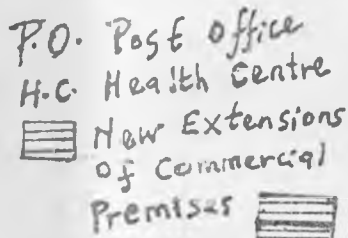 P.O. Post office
H.C. Health Centre
New Extensions
of Commercial
Premises